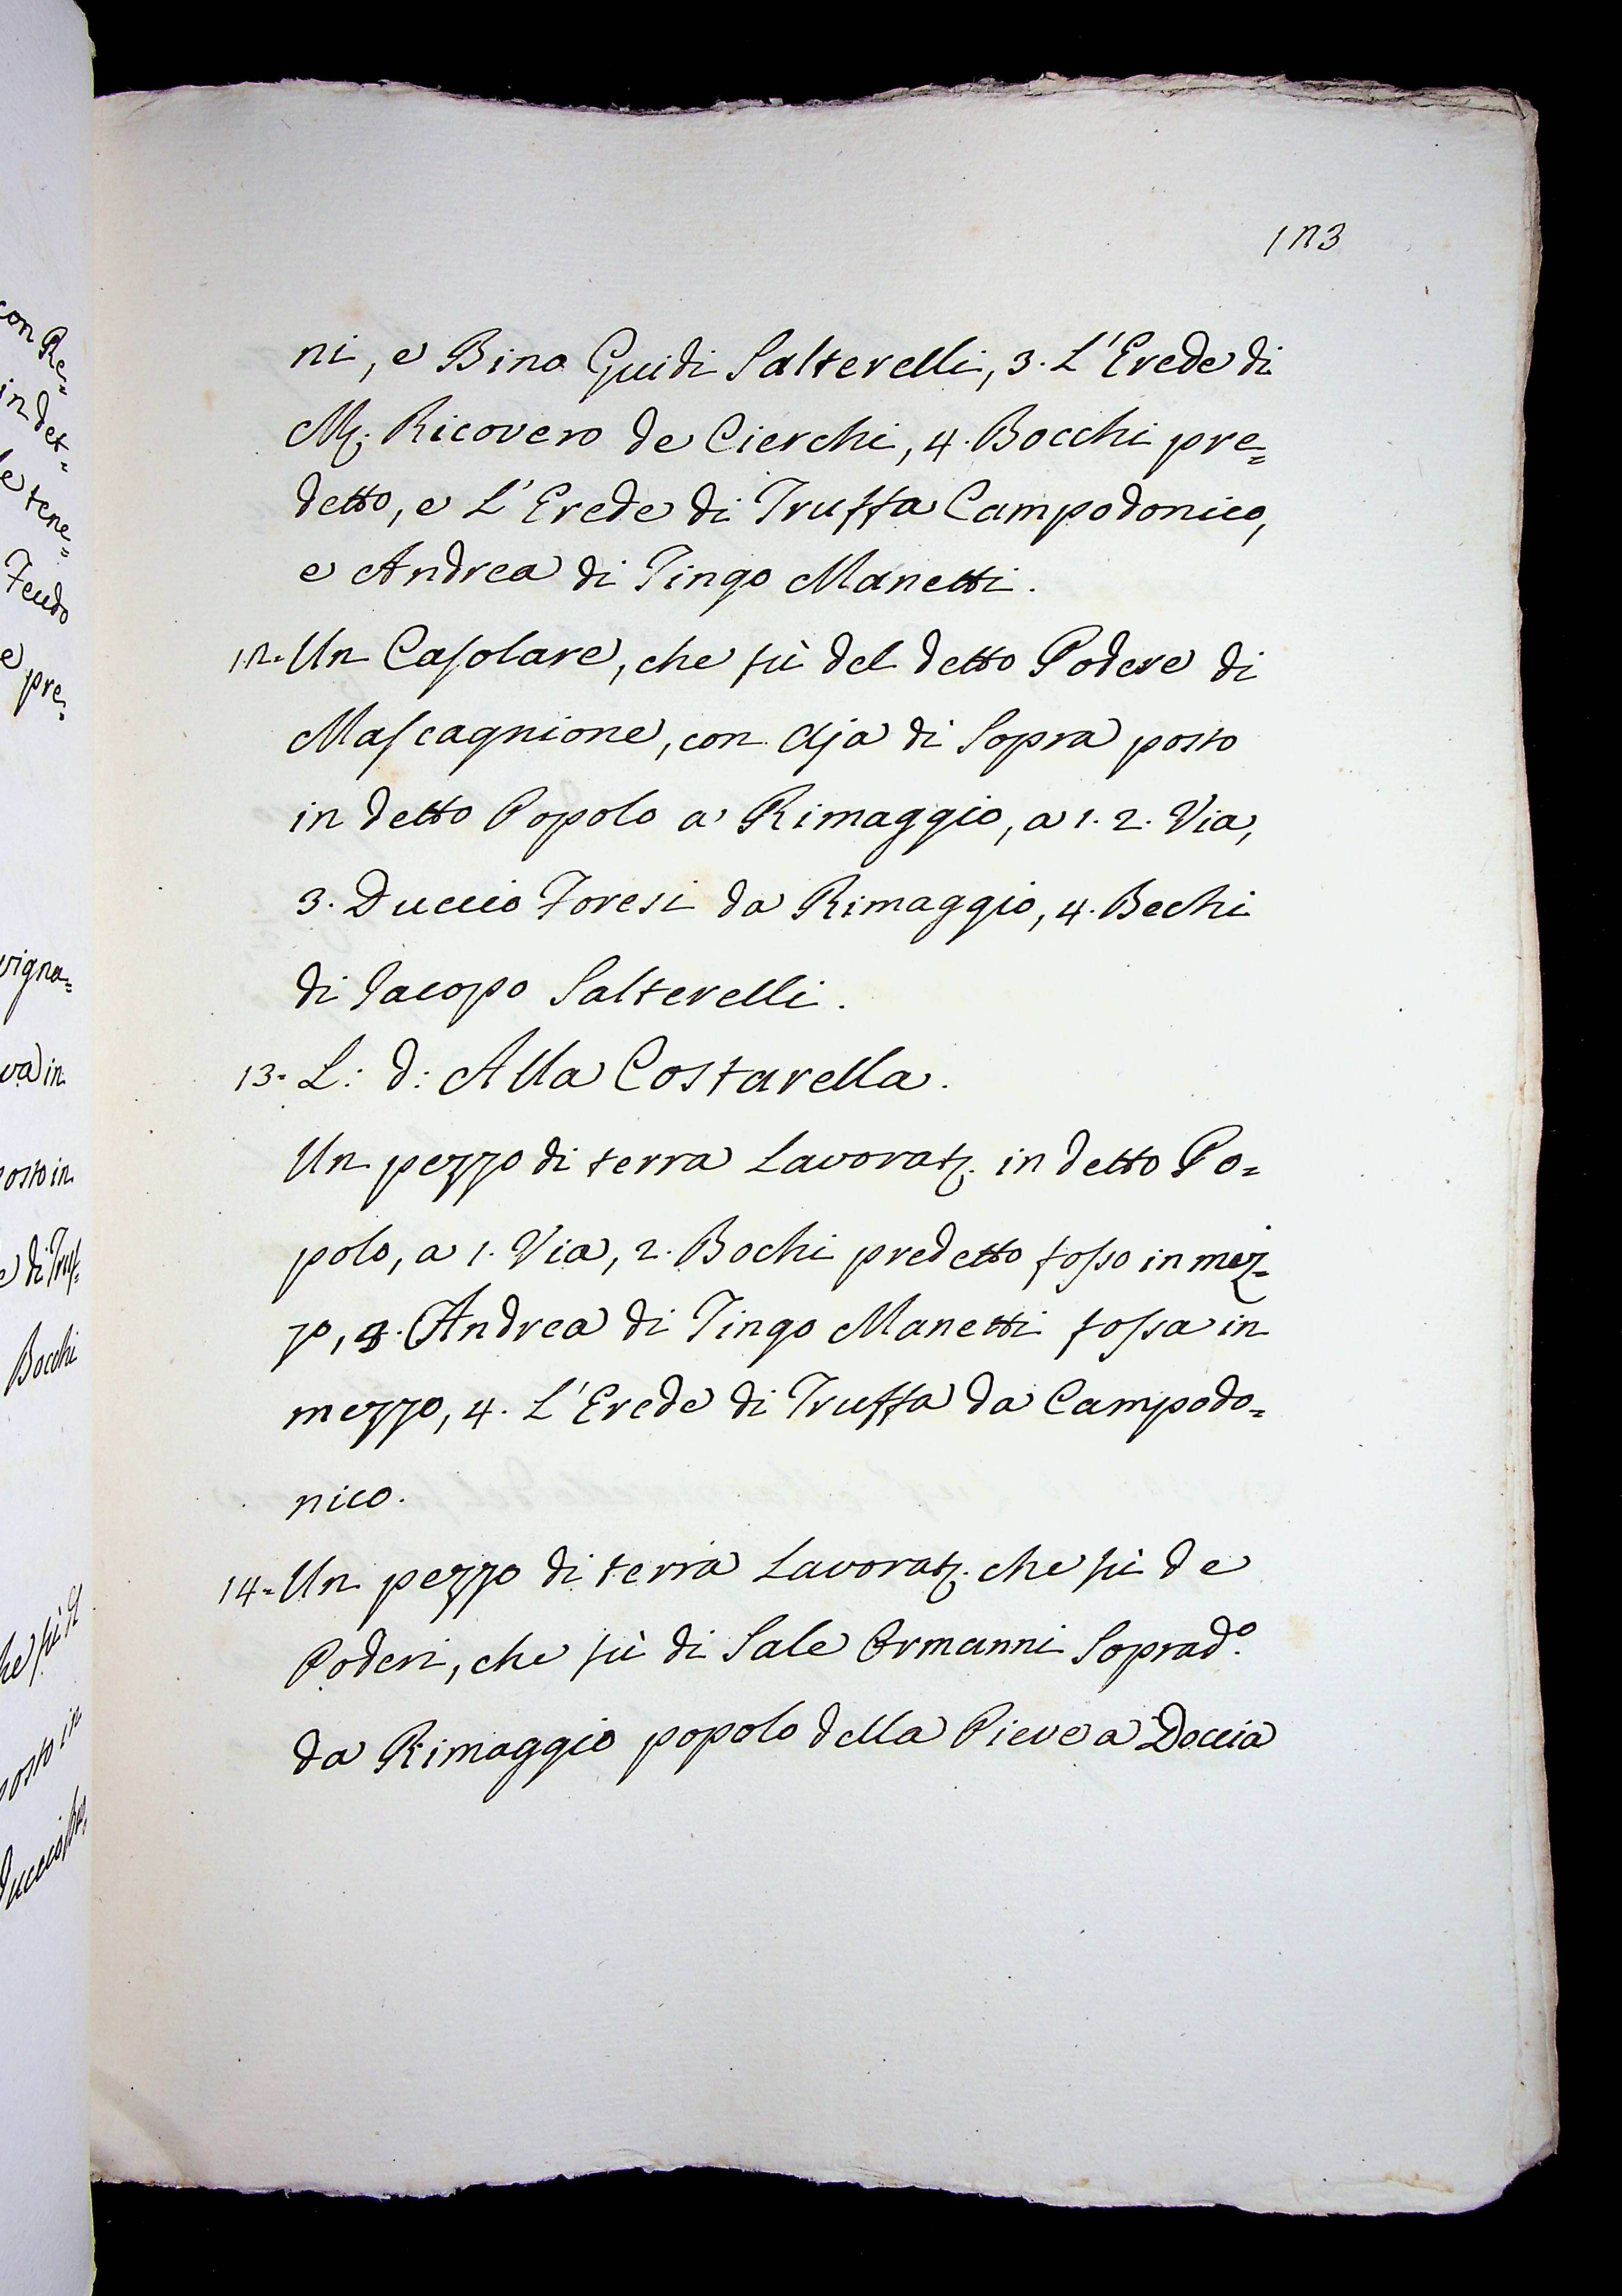 123
ni, e Bino Guidi Salterelli, 3. L'Erede di
Mʃ. Ricovero de Cierchi, 4. Bocchi pre=
detto, e L'Erede di Truffa Campodonico,
e Andrea di Tingo Manetti.
12. Un Caſolare, che fù del detto Podere di
Maſcagnione, con Aja di Sopra posto
in detto Popolo a Rimaggio, a 1. 2. Via,
3. Duccio Foresi da Rimaggio, 4. Bechi
di Jacopo Salterelli.
13. L: d: Alla Costarella.
Un pezzo di terra Lavoratʒ. in detto Po=
polo, a 1. Via, 2. Bochi predetto foſso in mez=
zo, 3. Andrea di Tingo Manetti foſsa in
mezzo, 4. L'Erede di Truffa da Campodo=
nico.
14= Un pezzo di terra Lavoratʒ. che fù de
Poderi, che fù di Sale Ormanni Soprad.º
da Rimaggio popolo della Pieve a Doccia
con Re=
in det=
e tene=
Feudo
e pre=
vigna=
va in
osto in
e di Truf=
Bocchi
he fù d
posto in